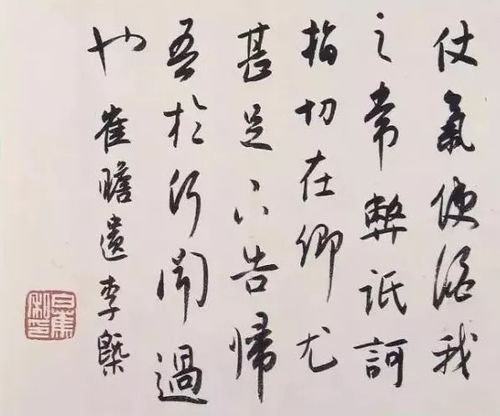 仗氣使酒我
之常弊詆訶
指切在卿尤
甚足下告歸
吾於何聞過
也 崔瞻遺李槩
白蕉私印